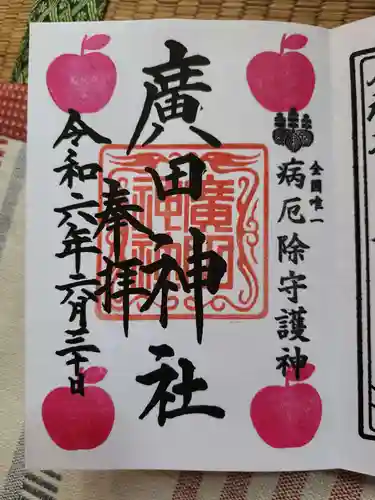 全国唯一
病厄除守護神
廣田神社
奉拝
令和六年六月三十日
廣田神社